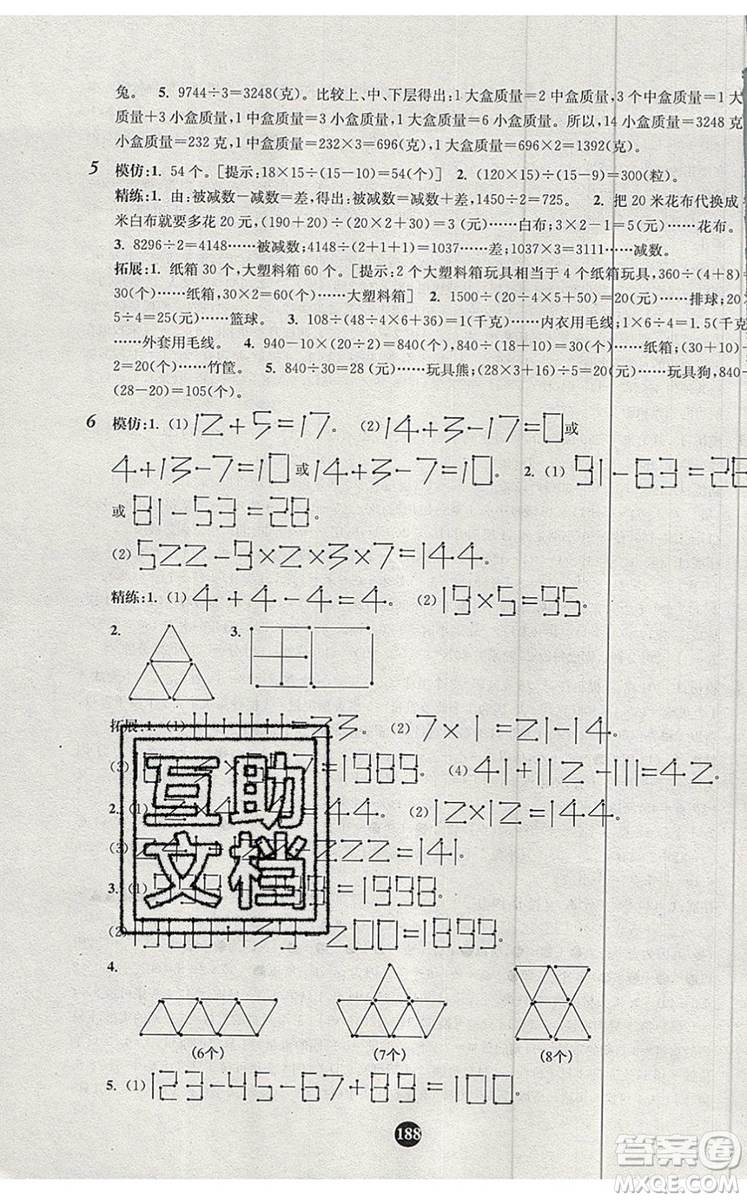 兔。 5. 9744÷3=3248(克)。比较上、中、下层得出:1大盒质量=2中盒质量,3个中盒质量=1大盒
质量+3小盒质量,1中盒质量=3小盒质量,1大盒质量=6小盒质量。所以,14小盒质量=3248克
小盒质量=232克,1中盒质量=232×3=696(克),1大盒质量=696×2=1392(克)。
5 模仿:1. 54个。[提示:18×15÷(15-10)=54(个)] 2. (120×15)÷(15-9)=300(粒)。
精练:1. 由:被减数-减数=差,得出:被减数=减数+差,1450÷2=725。 2. 把20米花布代换成
米白布就要多花20元,(190+20)÷(20×2+30)=3(元)……白布;3×2-1=5(元)……花布。
3. 8296÷2=4148……被减数;4148÷(1+1×3)=1037……差;1037×3=3111……减数。
拓展:1. 纸箱30个,大塑料箱60个。[提示:2个大塑料箱玩具相当于4个纸箱玩具,360÷(4+8)=
30(个)……纸箱,30×2=60(个)……大塑料箱] 2. 1500÷(20÷4×5+50)=20(元)……排球;20×
5÷4=25(元)……篮球。 3. 108÷(48÷4×6+36)=1(千克)……内衣用毛线;1×6÷4=1.5(千克)
……外套用毛线。 4. 940-10×(20÷2)=840(个),840÷(10+20÷2+8)=30(个)……纸箱;(30+10)÷
2=20(个)……竹筐。 5. 840÷30=28(元)……玩具熊;(28×5-20)÷6=20(元)……玩具狗,840÷
(28-20)=105(个)。
6 模仿:1. (1) 12+5=17。 (2) 14+3-17=0或
4+13-7=10或14+3-7=10。 2. (1) 91-63=28
或81-53=28。
(2) 522-9×2×3×7=144。
精练:1. (1) 4+4-4=4。 (2) 19×5=95。
2. 3.
拓展:1. (1) 11+11+11=33。 (2) 7×1=21-14。
=1989。 (4) 41+112-111=42。
2. (1) =44。 (2) 12×12=144。
(3) =141。
3. (1) =1998。
(2) 200=1899。
互助
文档
4.
(6个) (7个) (8个)
5. (1) 123-45-67+89=100。
188
答案圈
MXQE.COM